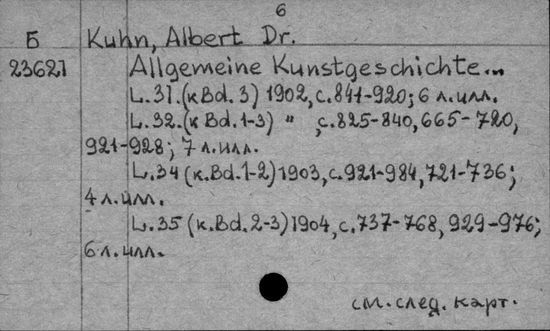 6
Б Kuhn, Albert Dr.
23627 Allgemeine Kunstgeschichte...
L.31.(к Bd. 3) 1902, с.841-920; 6 л.илл.
L.32.(к Bd.1-3) " , с.825-840, 665-720,
921-928; 7 л.илл.
L.34 (к.Bd.1-2) 1903, с.921-984, 721-736;
4 л.илл.
L.35 (к.Bd.2-3) 1904, с.737-768, 929-976;
6 л.илл.
см. след. карт.